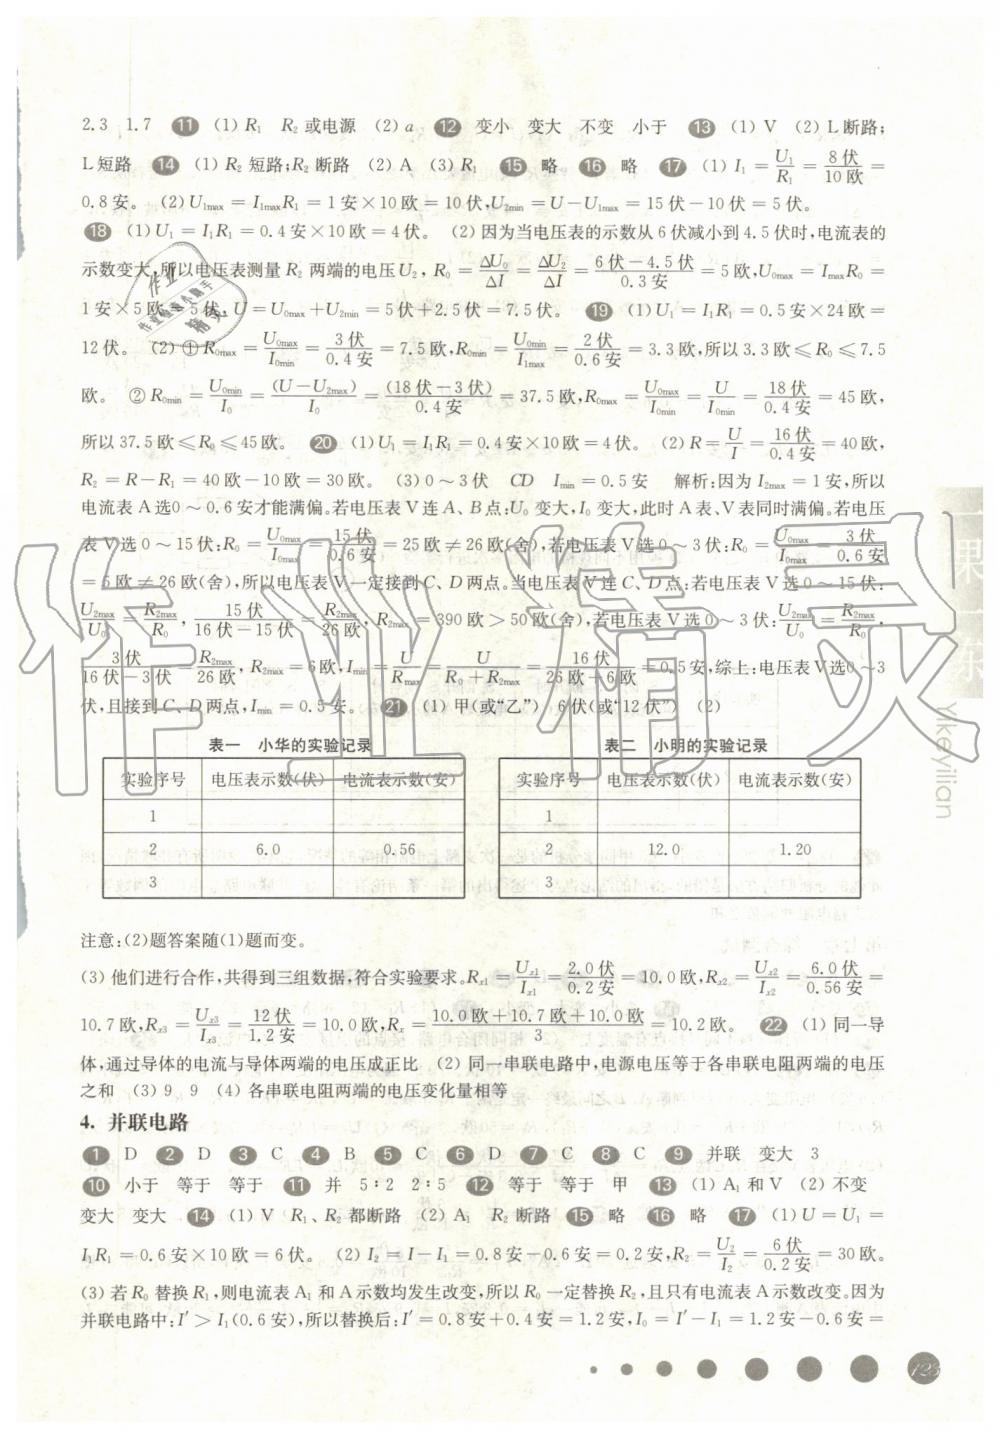 2.3 1.7 11 (1) R₁ R₂或电源 (2) a 12 变小 变大 不变 小于 13 (1) V (2) L断路;
L短路 14 (1) R₂短路;R₂断路 (2) A (3) R₁ 15 略 16 略 17 (1) I₁ = U₁/R₁ = 8伏/10欧 =
0.8安。 (2) U₁max = I₁maxR₁ = 1安×10欧 = 10伏,U₂min = U－U₁max = 15伏－10伏 = 5伏。
18 (1) U₁ = I₁R₁ = 0.4安×10欧 = 4伏。 (2) 因为当电压表的示数从6伏减小到4.5伏时,电流表的
示数变大,所以电压表测量R₂两端的电压U₂, R₀ = ΔU₀/ΔI = ΔU₂/ΔI = (6伏－4.5伏)/0.3安 = 5欧,U₀max = ImaxR₀ =
1安×5欧 = 5伏, U = U₀max + U₂min = 5伏+2.5伏 = 7.5伏。 19 (1) U₁ = I₁R₁ = 0.5安×24欧 =
12伏。 (2) ① R₀max = U₀max/I₀min = 3伏/0.4安 = 7.5欧,R₀min = U₀min/I₁max = 2伏/0.6安 = 3.3欧,所以3.3欧≤R₀≤7.5
欧。 ② R₀min = U₀min/I₀ = (U－U₂max)/I₀ = (18伏－3伏)/0.4安 = 37.5欧,R₀max = U₀max/I₀min = U/I₀min = 18伏/0.4安 = 45欧,
所以37.5欧≤R₀≤45欧。 20 (1) U₁ = I₁R₁ = 0.4安×10欧 = 4伏。 (2) R = U/I = 16伏/0.4安 = 40欧,
R₂ = R－R₁ = 40欧－10欧 = 30欧。 (3) 0～3伏 CD Imin = 0.5安 解析:因为I₂max = 1安,所以
电流表A选0～0.6安才能满偏。若电压表V连A、B点:U₀变大,I₀变大,此时A表、V表同时满偏。若电压
表V选0～15伏:R₀ = U₀max/I₀max = 15伏/0.6安 = 25欧≠26欧(舍),若电压表V选0～3伏:R₀ = U₀max/I₀max = 3伏/0.6安
= 5欧≠26欧(舍),所以电压表V一定接到C、D两点。当电压表V连C、D点:若电压表V选0～15伏:
U₂max/U₀ = R₂max/R₀, 15伏/(16伏－15伏) = R₂max/26欧, R₂max = 390欧＞50欧(舍),若电压表V选0～3伏:U₂max/U₀ = R₂max/R₀,
3伏/(16伏－3伏) = R₂max/26欧, R₂max = 6欧,Imin = U/Rmax = U/(R₀+R₂max) = 16伏/(26欧+6欧) = 0.5安,综上:电压表V选0～3
伏,且接到C、D两点,Imin = 0.5安。 21 (1) 甲(或“乙”) 6伏(或“12伏”) (2)
表一 小华的实验记录
实验序号 电压表示数(伏) 电流表示数(安)
1
2 6.0 0.56
3
表二 小明的实验记录
实验序号 电压表示数(伏) 电流表示数(安)
1
2 12.0 1.20
3
注意:(2)题答案随(1)题而变。
(3) 他们进行合作,共得到三组数据,符合实验要求。Rx1 = Ux1/Ix1 = 2.0伏/0.2安 = 10.0欧,Rx2 = Ux2/Ix2 = 6.0伏/0.56安 =
10.7欧,Rx3 = Ux3/Ix3 = 12伏/1.2安 = 10.0欧,Rx = (10.0欧+10.7欧+10.0欧)/3 = 10.2欧。 22 (1) 同一导
体,通过导体的电流与导体两端的电压成正比 (2) 同一串联电路中,电源电压等于各串联电阻两端的电压
之和 (3) 9、9 (4) 各串联电阻两端的电压变化量相等
4. 并联电路
1 D 2 D 3 C 4 B 5 C 6 D 7 C 8 C 9 并联 变大 3
10 小于 等于 等于 11 并 5∶2 2∶5 12 等于 等于 甲 13 (1) A₁和V (2) 不变
变大 变大 14 (1) V R₁、R₂都断路 (2) A₁ R₂断路 15 略 16 略 17 (1) U = U₁ =
I₁R₁ = 0.6安×10欧 = 6伏。 (2) I₂ = I－I₁ = 0.8安－0.6安 = 0.2安,R₂ = U₂/I₂ = 6伏/0.2安 = 30欧。
(3) 若R₀替换R₁,则电流表A₁和A示数均发生改变,所以R₀一定替换R₂,且只有电流表A示数改变。因为
并联电路中:I′＞I₁(0.6安),所以替换后:I′ = 0.8安+0.4安 = 1.2安,I₀ = I′－I₁ = 1.2安－0.6安 =
Yikeyilian
作业精灵